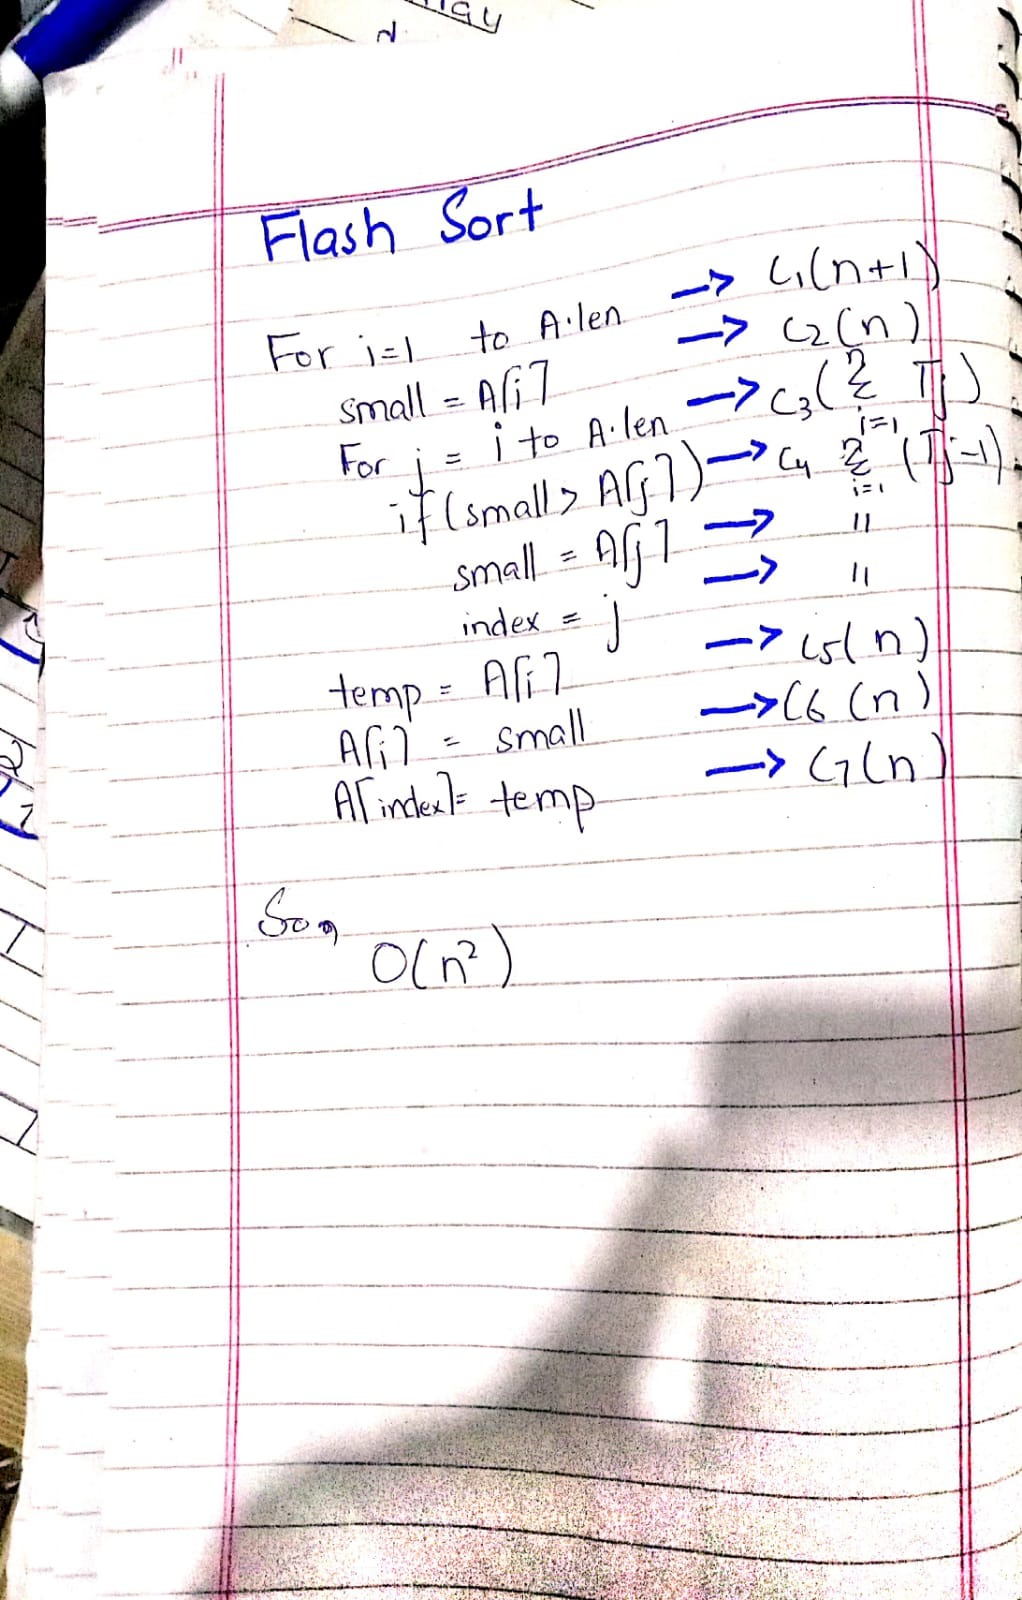 Flash Sort
For i=1 to A.len → C1(n+1)
small = A[i] → C2(n)
For j = i to A.len → C3(Σ i=1 n Tj)
if(small > A[j]) → C4 Σ i=1 n (Tj-1)
small = A[j] → "
index = j → "
temp = A[i] → C5(n)
A[i] = small → C6(n)
A[index] = temp → C7(n)
So,
O(n²)